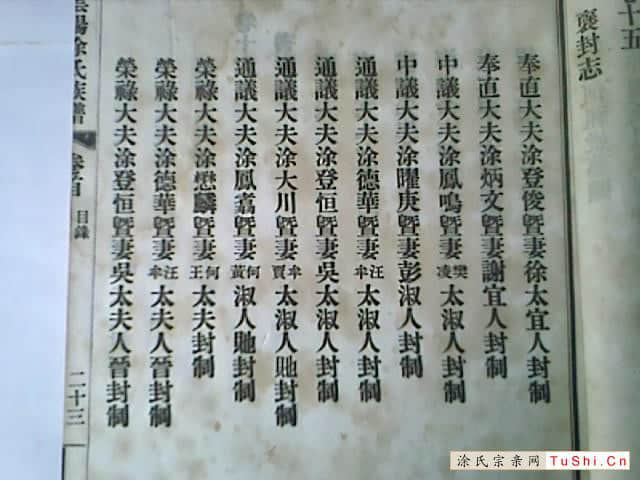 十五
褒封志
奉直大夫涂登俊暨妻徐太宜人封制
奉直大夫涂炳文暨妻謝宜人封制
中議大夫涂鳳鳴暨妻樊凌太淑人封制
中議大夫涂曜庚暨妻彭淑人封制
通議大夫涂德華暨妻汪牟太淑人封制
通議大夫涂登恒暨妻吳太淑人封制
通議大夫涂大川暨妻牟賈太淑人貤封制
通議大夫涂鳳嘉暨妻何黃淑人貤封制
榮祿大夫涂懋麟暨妻何王太夫封制
榮祿大夫涂德華暨妻汪牟太夫人晉封制
榮祿大夫涂登恒暨妻吳太夫人晉封制
雲陽涂氏族譜
卷之首
目錄
二十三
涂氏宗亲网 TuShi.Cn